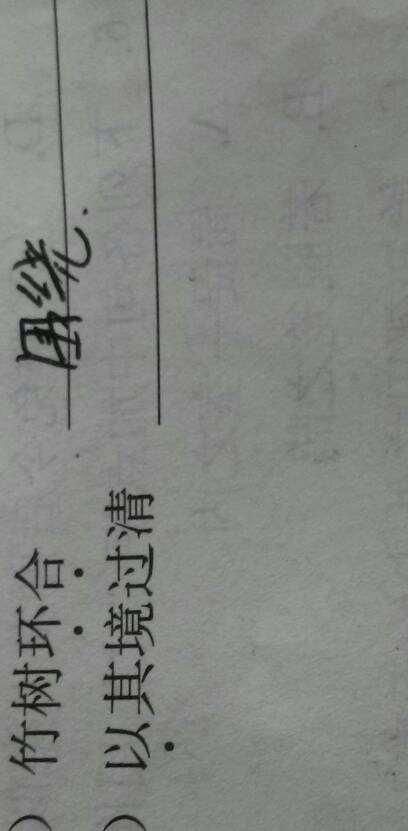 ）竹树环合 围绕.
）以其境过清